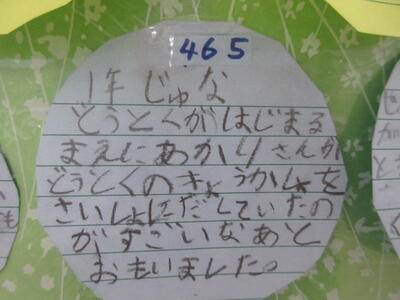 465
1年 じゅな
どうとくがはじまる
まえにあかりさんが
どうとくのきょうかしょを
さいしょにだしていたの
がすごいなあと
おもいました。